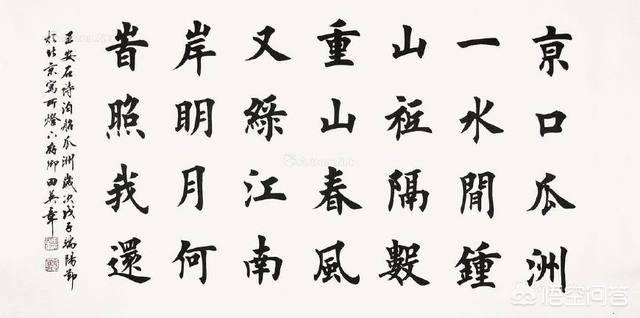 京口瓜洲
一水間鍾
山祗隔數
重山春風
又綠江南
岸明月何
旹照我還
王安石詩泊船瓜洲歲次戊子端陽節
於北京寫所燈下存卿田英章
悟空问答